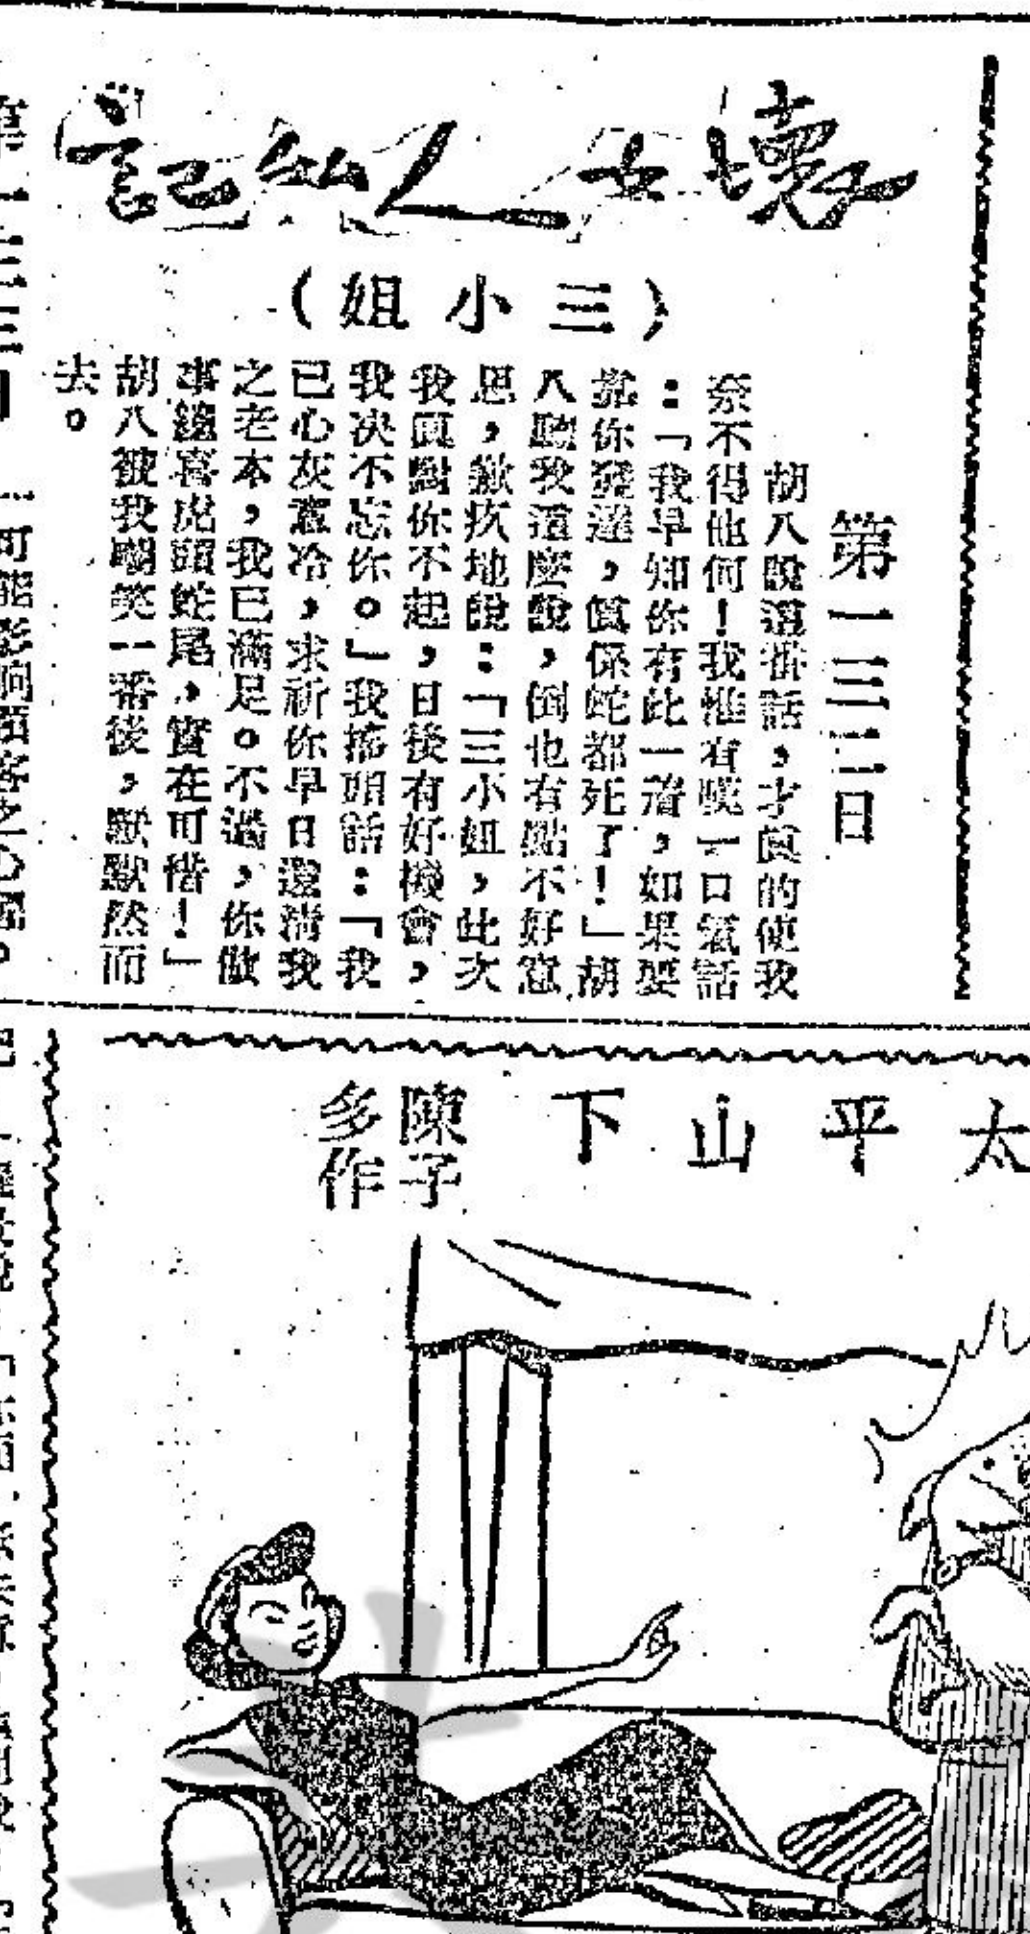 壞女人私記
(三小姐)
第一三二日
胡八說這番話，才眞的使我
奈不得他何！我惟有嘆一口氣話
：「我早知你有此一着，如果要
靠你發達，眞係蛇都死了！」胡
八聽我這麽說，倒也有點不好意
思，歉疚地說：「三小姐，此次
我眞對你不起，日後有好機會，
我决不忘你。」我搖頭話：「我
已心灰意冷，求祈你早日還清我
之老本，我已滿足。不過，你做
事總喜虎頭蛇尾，實在可惜！」
胡八被我嘲笑一番後，默默然而
去。
可能影响顧客之心理。
太平山下
陳子
多作